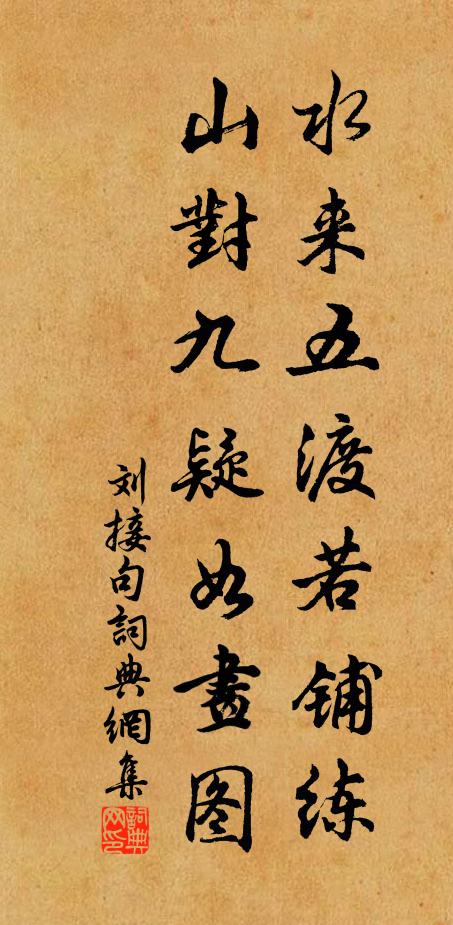 水来五渡若铺练
山對九疑如畫图
刘接句詞典網集
詞典网印